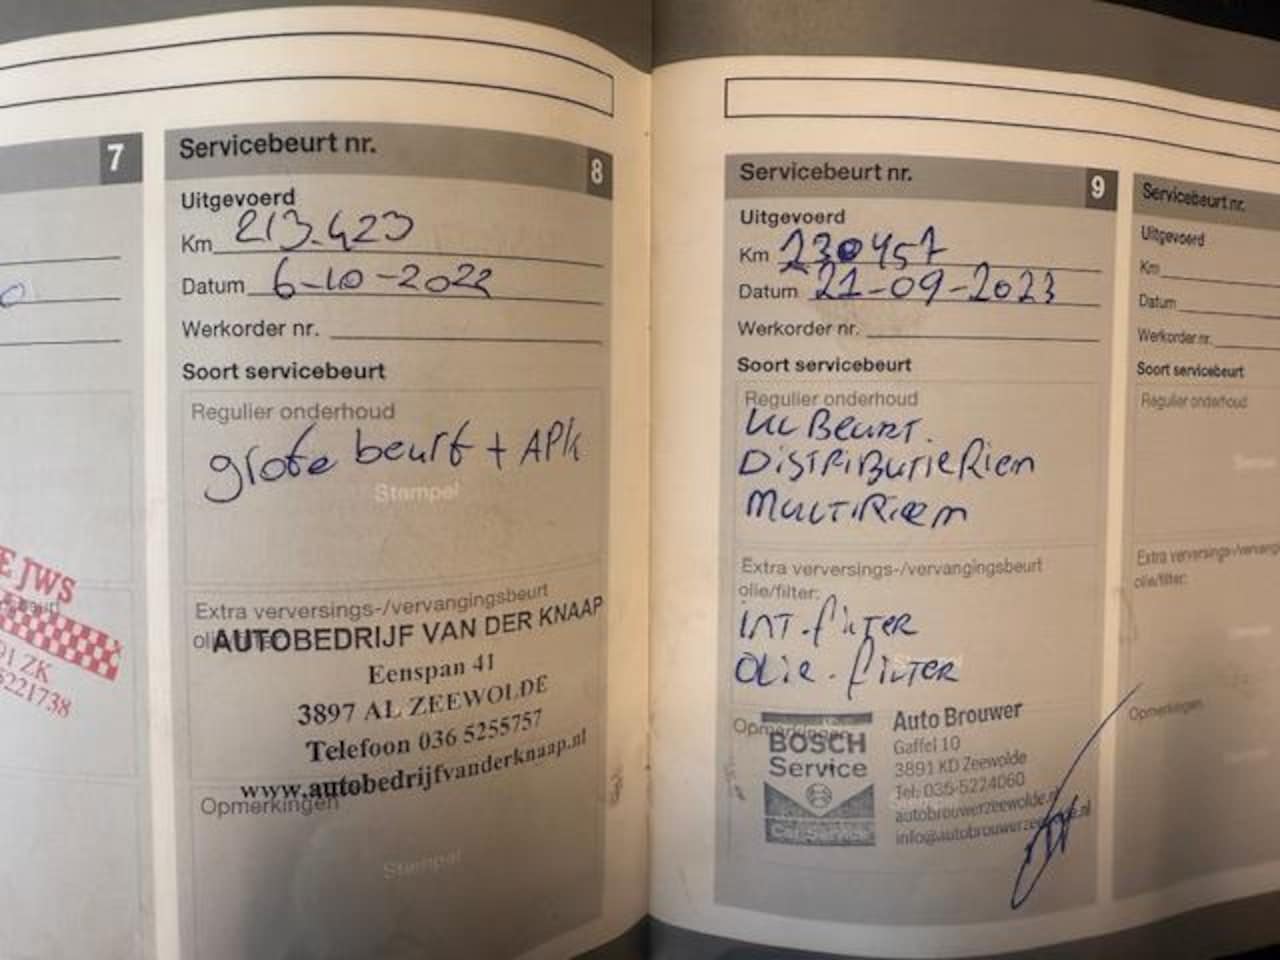 7
E JWS
91 ZK
5221738
Servicebeurt nr.
8
Uitgevoerd
Km 213.423
Datum 6-10-2022
Werkorder nr.
Soort servicebeurt
Regulier onderhoud
grote beurt + APK
Stempel
Extra verversings-/vervangingsbeurt
AUTOBEDRIJF VAN DER KNAAP
Eenspan 41
3897 AL ZEEWOLDE
Telefoon 036 5255757
www.autobedrijfvanderknaap.nl
Opmerkingen
Stempel
Servicebeurt nr.
9
Uitgevoerd
Km 230457
Datum 21-09-2023
Werkorder nr.
Soort servicebeurt
Regulier onderhoud
BEURT.
DISTRIBUTIERIEM
MULTIRIEM
Extra verversings-/vervangingsbeurt
olie/filter:
INT. filTER
OLIE. filTER
Opmerkingen
BOSCH
Service
Car Service
Auto Brouwer
Gaffel 10
3891 KD Zeewolde
Tel: 036-5224060
autobrouwerzeewolde.nl
info@autobrouwerzeewolde.nl
Servicebeurt nr.
Uitgevoerd
Km
Datum
Werkorder nr.
Soort servicebeurt
Regulier onderhoud
Extra verversings-/vervangings
olie/filter:
Opmerkingen